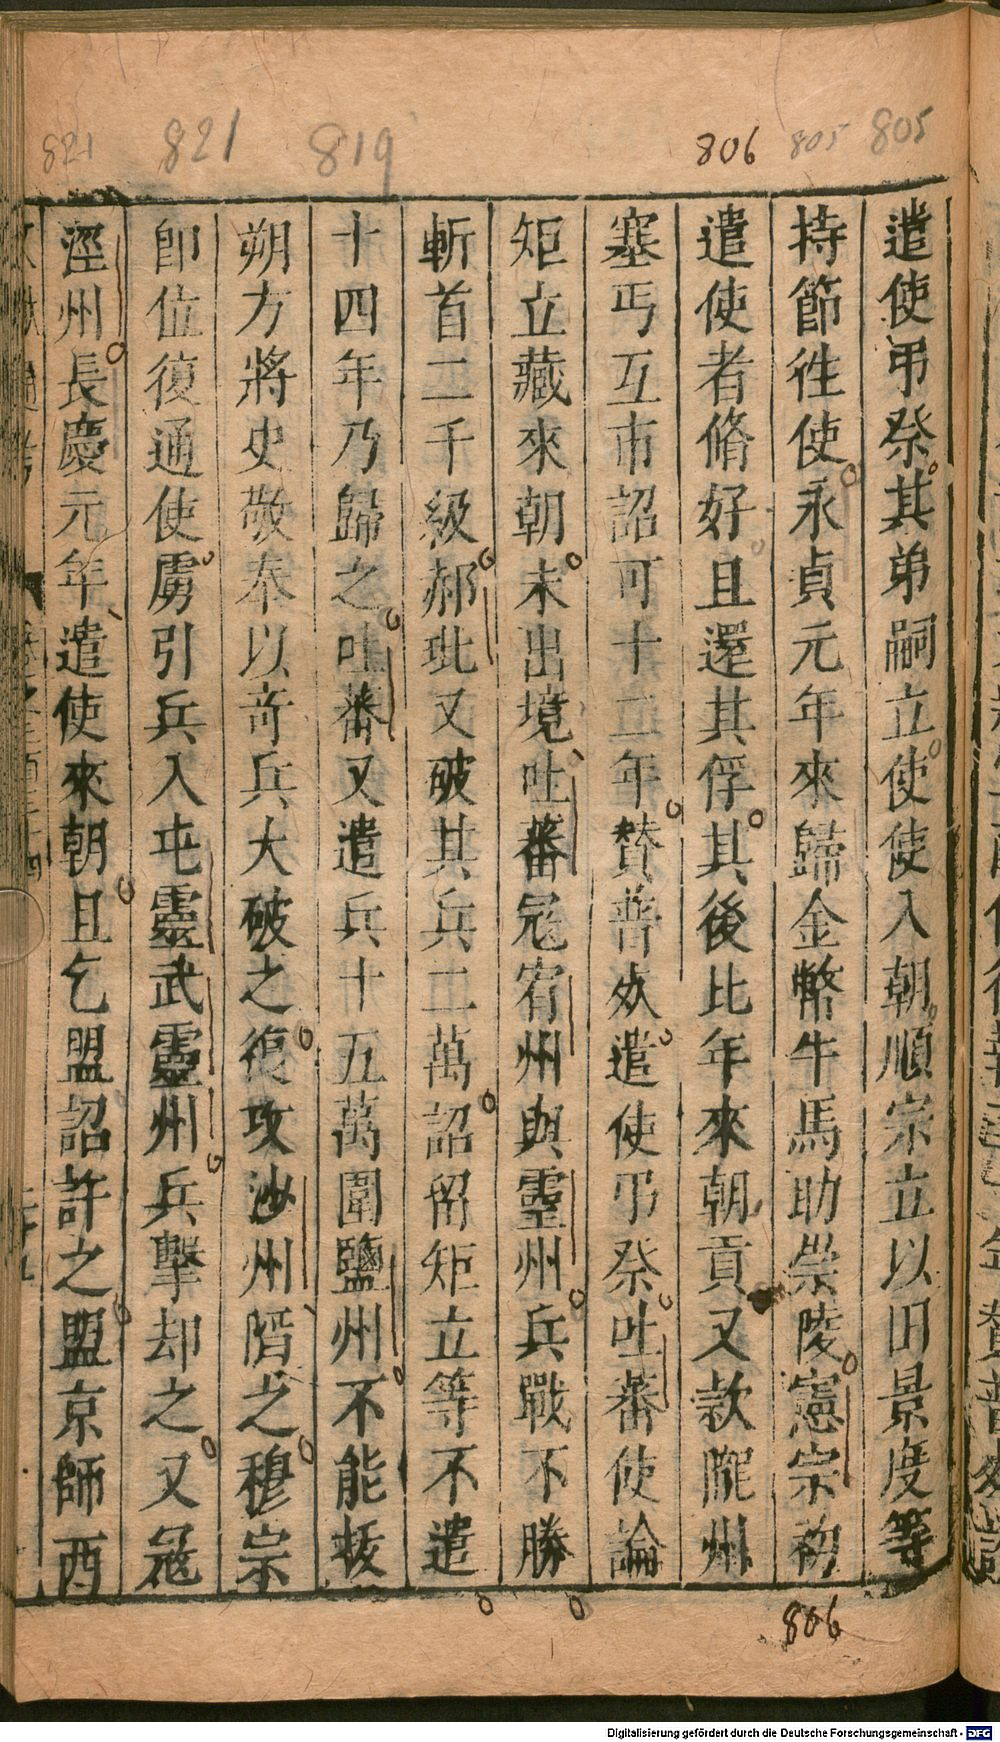 805
805
806
819
821
821
遣使弔祭其弟嗣立使使入朝順宗立以旧景度等
持節徃使永貞元年來歸金幣牛馬助崇陵憲宗初
遣使者脩好且還其俘其後比年來朝貢又款隴州
塞丐互市詔可十二年贊普𣧑遣使弔祭吐蕃使論
矩立藏來朝未出境吐蕃冦宥州與靈州兵戰不勝
斬首二千級郝玼又破其兵二萬詔留矩立等不遣
十四年乃歸之吐蕃又遣兵十五萬圍鹽州不能拔
朔方將史敬奉以奇兵大破之復攻沙州陷之穆宗
卽位復通使虜引兵入屯靈武靈州兵擊却之又冦
涇州長慶元年遣使來朝且乞盟詔許之盟京師西
806
Digitalisierung gefördert durch die Deutsche Forschungsgemeinschaft - DFG